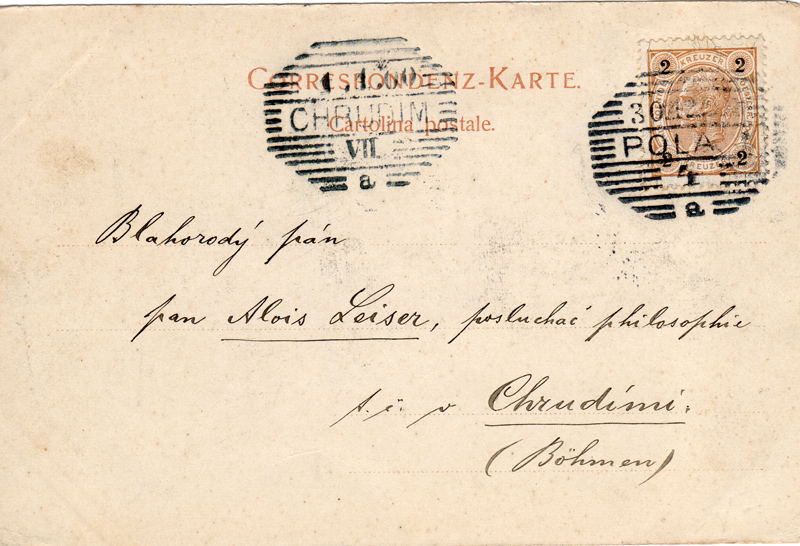 CORRESPONDENZ-KARTE.
Cartolina postale.
1.1.00
CHRUDIM
VII.
a
2 KREUZER 2
2 KREUZER 2
30.12
POLA
1
a
Blahorodý pán
pan Alois Leiser, posluchač philosophie
t. č. v Chrudimi.
(Böhmen)